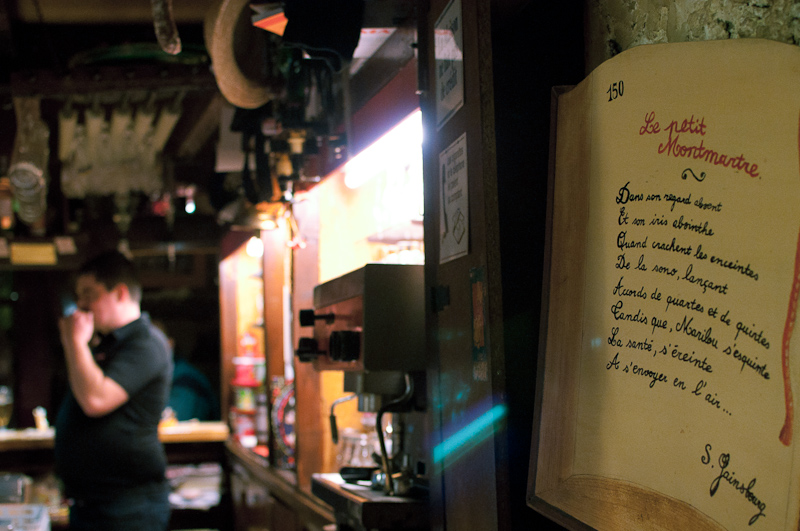 150
Le petit
Montmartre.
Dans son regard absent
Et son iris absinthe
Quand crachent les enceintes
De la sono, lançant
Accords de quartes et de quintes
Tandis que, Marilou s'esquinte
La santé, s'éreinte
A s'envoyer en l'air...
S. Gainsbourg